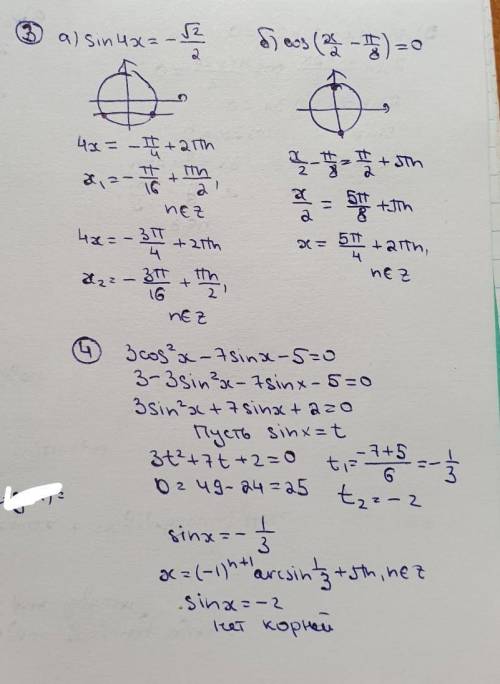 ③ а) sin4x = -√2/2
б) cos(x/2 - π/8) = 0
4x = -π/4 + 2πn
x₁ = -π/16 + πn/2,
n∈z
4x = -3π/4 + 2πn
x₂ = -3π/16 + πn/2,
n∈z
x/2 - π/8 = π/2 + πn
x/2 = 5π/8 + πn
x = 5π/4 + 2πn,
n∈z
④ 3cos²x - 7sinx - 5 = 0
3 - 3sin²x - 7sinx - 5 = 0
3sin²x + 7sinx + 2 = 0
Пусть sinx = t
3t² + 7t + 2 = 0
D = 49 - 24 = 25
t₁ = (-7+5)/6 = -1/3
t₂ = -2
sinx = -1/3
x = (-1)ⁿ⁺¹ arcsin 1/3 + πn, n∈z
sinx = -2
нет корней